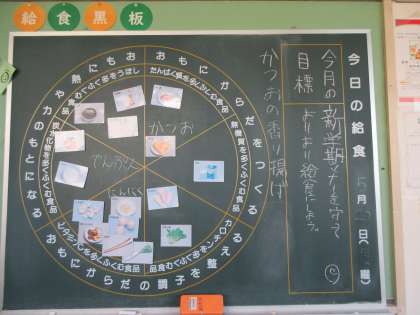 給食黒板
今日の給食
5月
日(
曜)
今月の
目標
新学期
より
給食に
かつおの香り揚げ
おもにからだをつくる
たんぱく質を多くふくむ食品
無機質を多くふくむ食品
おもにからだの調子を整える
カロテンを多くふくむ食品
ビタミンCを多くふくむ食品
おもに
力や熱
のもとになる
炭水化物を多くふくむ食品
かつお
でんぷん
にんにく